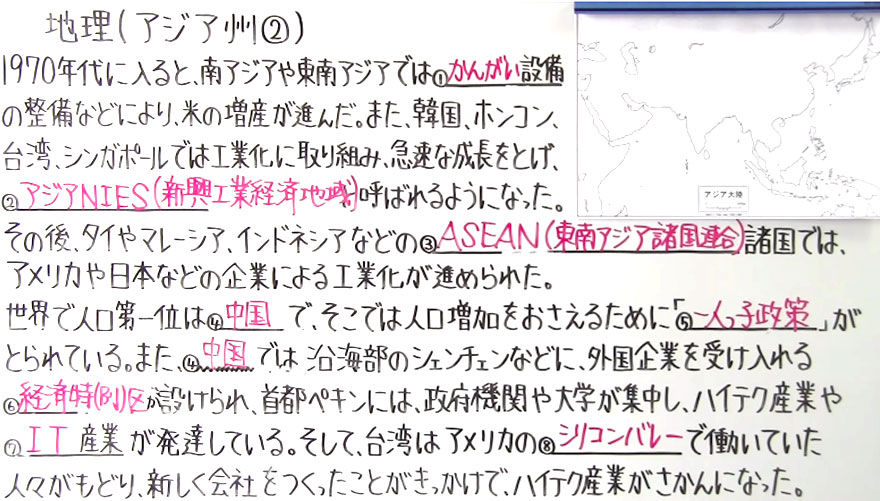 地理(アジア州②)
1970年代に入ると、南アジアや東南アジアでは①かんがい設備
の整備などにより、米の増産が進んだ。また、韓国、ホンコン、
台湾、シンガポールでは工業化に取り組み、急速な成長をとげ、
②アジアNIES(新興工業経済地域)呼ばれるようになった。
その後、タイやマレーシア、インドネシアなどの③ASEAN(東南アジア諸国連合)諸国では、
アメリカや日本などの企業による工業化が進められた。
世界で人口第一位は④中国で、そこでは人口増加をおさえるために「⑤一人っ子政策」が
とられている。また、④中国では沿海部のシェンチェンなどに、外国企業を受け入れる
⑥経済特(別)区が設けられ、首都ペキンには、政府機関や大学が集中し、ハイテク産業や
⑦IT産業が発達している。そして、台湾はアメリカの⑧シリコンバレーで働いていた
人々がもどり、新しく会社をつくったことがきっかけで、ハイテク産業がさかんになった。
アジア大陸